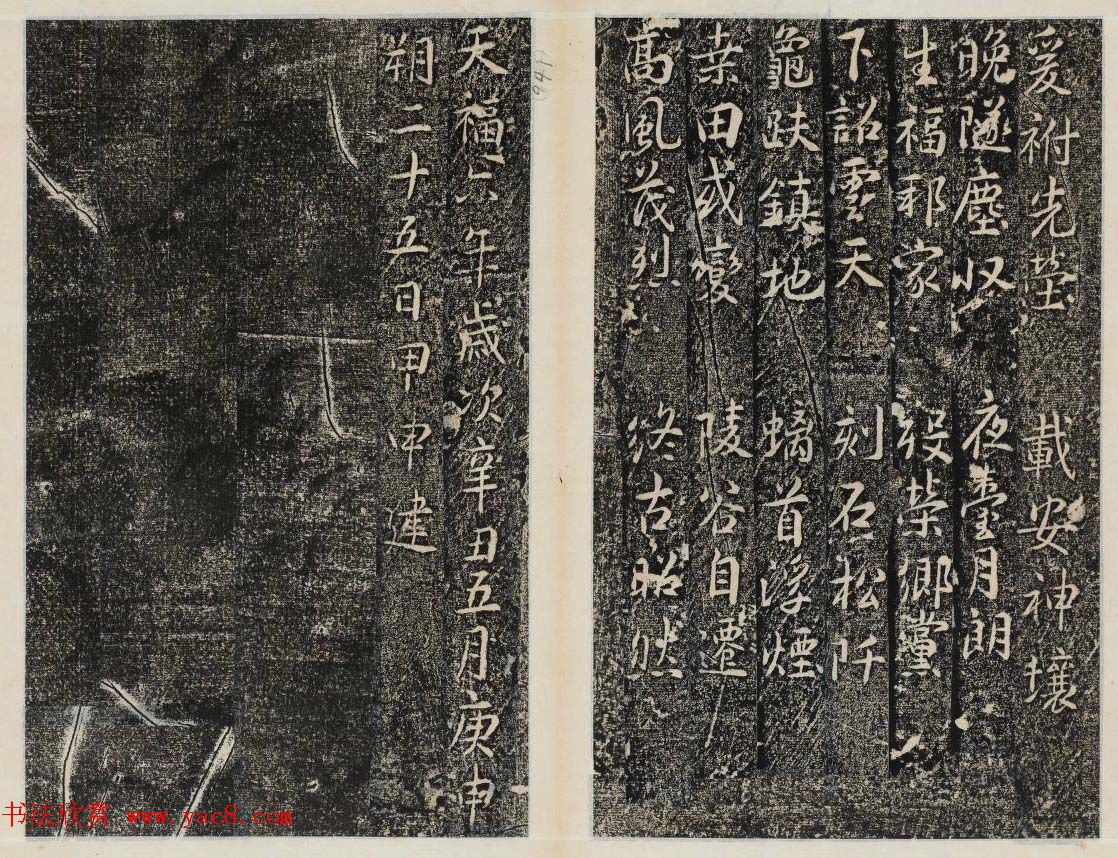 爰祔先塋 載安神壤
晚隧塵収 夜臺月朗
生福邦家 歿榮鄉黨
下詔雲天 刻石松阡
龜趺鎮地 螭首浮煙
桒田或變 陵谷自遷
高風茂烈 終古昭然
天福六年歲次辛丑五月庚申
朔二十五日甲申建
书法欣赏 www.yac8.com